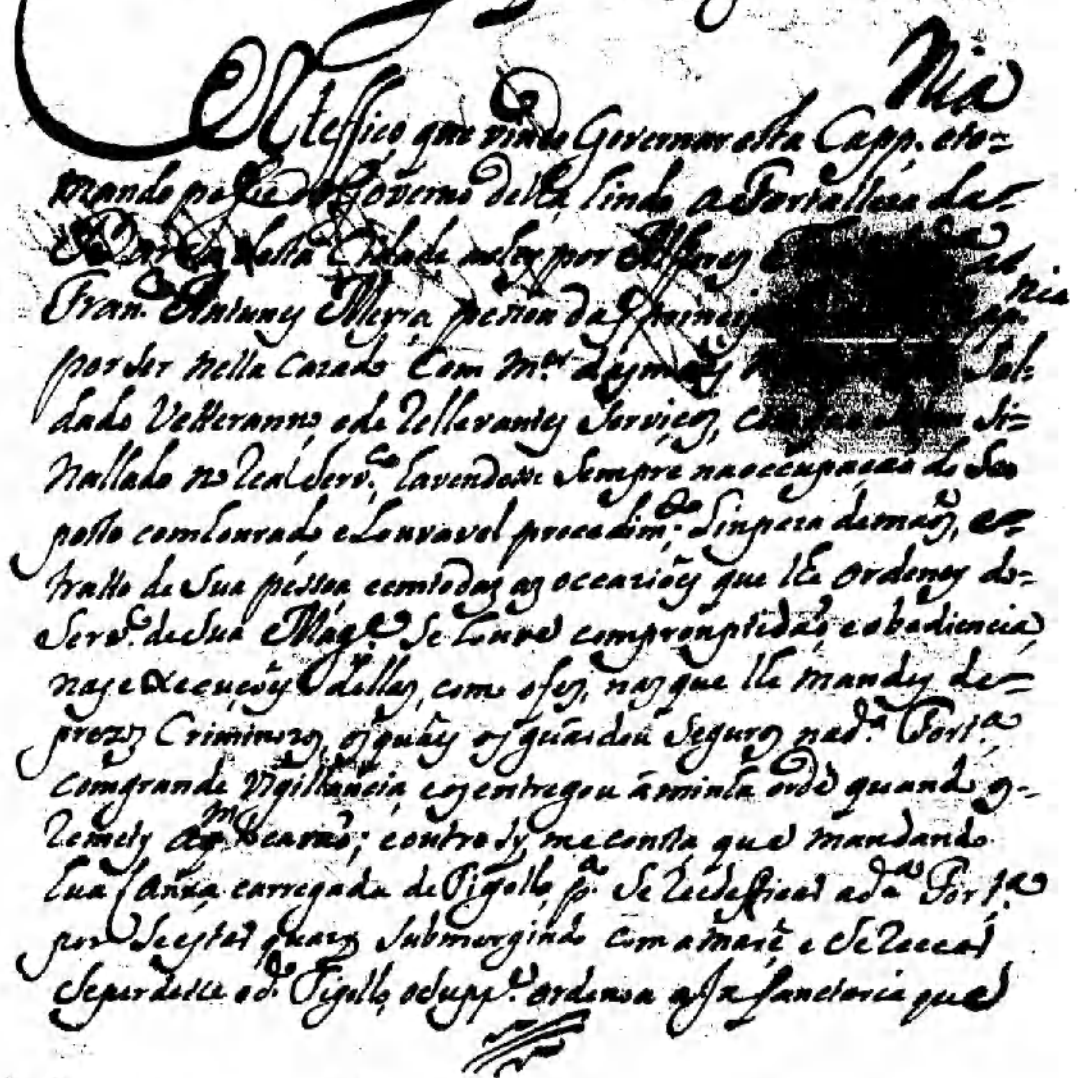 nia
Certeffico que vindo Governar esta Capp. e to=
mando posse do Governo della, hindo a Fortalleza da
Barra desta Cidade achey por Alferes
Fran.co Antunes Meyra, pessoa das primeiras nia
por ser nella cazado com m.er das mais Sol=
dado Vetteranno, e de Rellevantes Serviços, Si=
nallado no Real Serv.ço havendosse sempre na occupação do seu
posto com honrado e Louvavel procedim.to Linpeza de maos, e
tratto de sua pessoa, em todas as occazioẽs que lhe ordeney do
Serv.ço de Sua Mag.e Se houve com promptidaõ, e obediencia,
nas execuçoẽs dellas, como o fes, nas que lhe mandey de
prezos Criminozos, os quais os guardou Seguros na d.a Fort.a
com grande vigillancia, e os entregou á minha ordẽ quando os
Remety ao Ocarvo; e outro sy, me consta que mandando
hua Canoa carregada de Tigollo p.a Se Reedefficar a d.a Fort.a
por Se estar quazi Submergindo com a maré, e Se Recear
Se perdesse o d.o Tigollo, o Supp.e ordenou a Infanctaria que